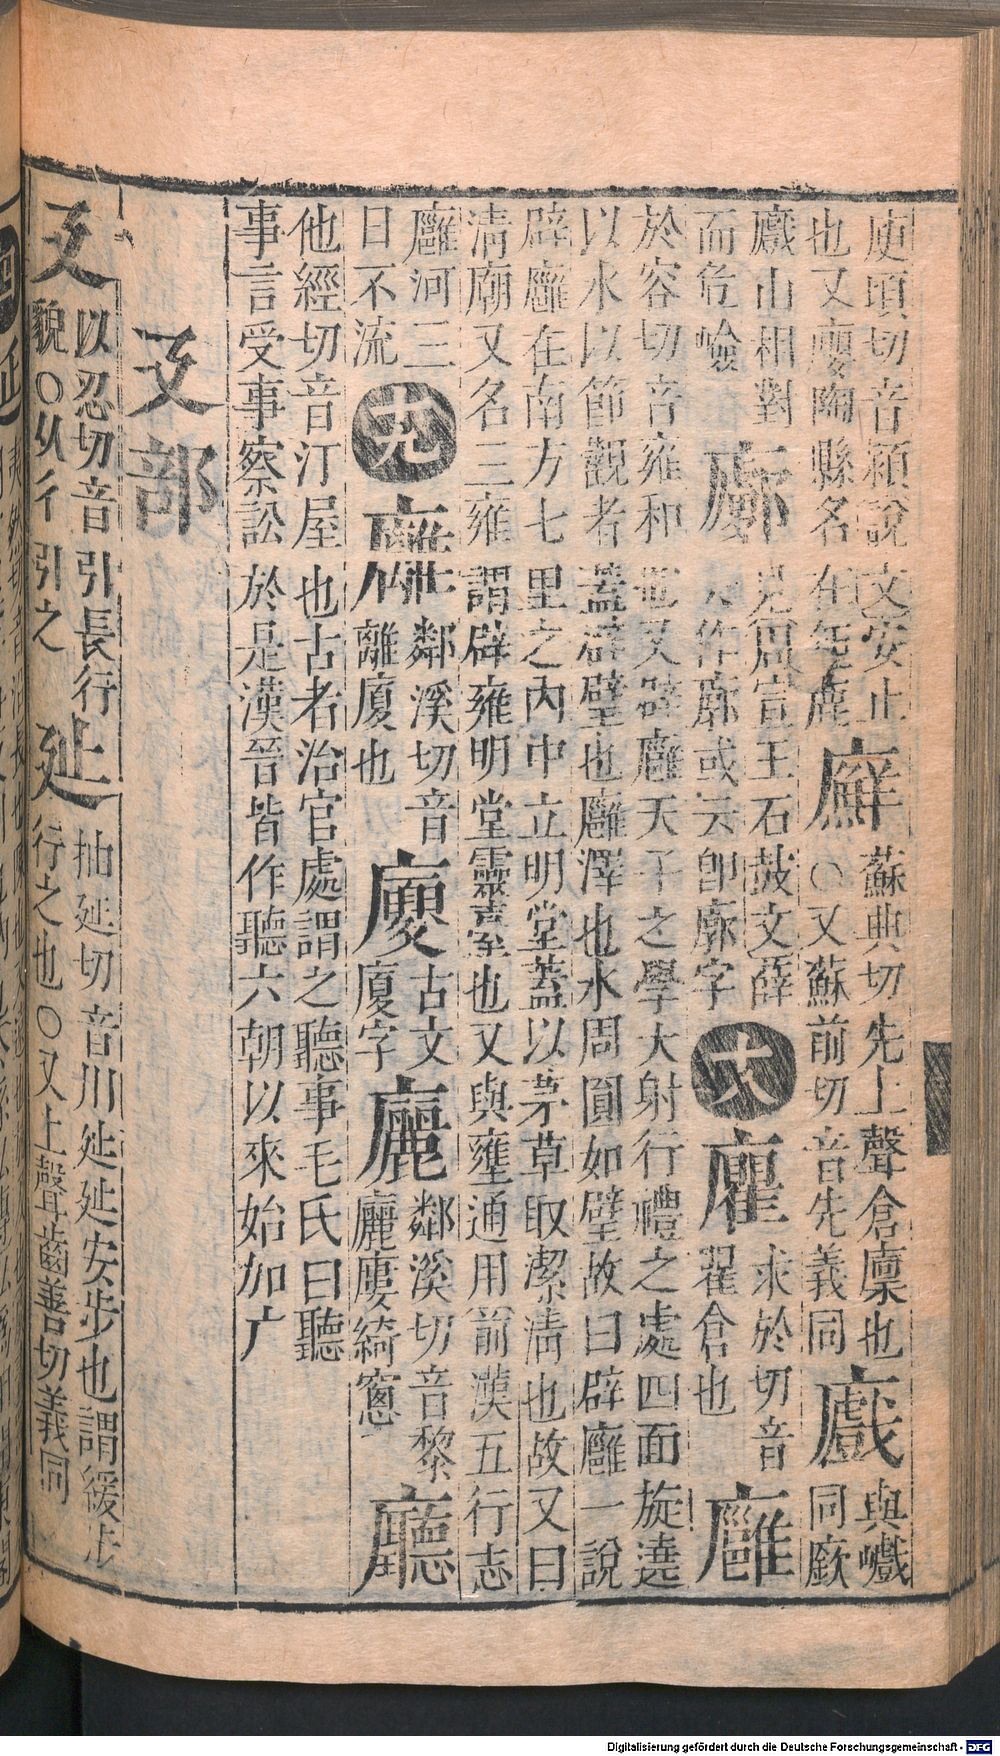 庾頃切音潁說文安止
也又廮陶縣名在鉅鹿
廯
蘇典切先上聲倉廩也
〇又蘇前切音先義同
㦻
與巇
同廞
巇山相對
而危嶮
見周宣王石鼓文薛
又作廓或云卽廓字
十八
求於切音
瞿倉也
廱
於容切音雍和也又辟廱天子之學大射行禮之處四面旋遶
以水以節觀者蓋辟璧也廱澤也水周圓如璧故曰辟廱一說
辟廱在南方七里之內中立明堂蓋以茅草取潔淸也故又曰
淸廟又名三雍謂辟雍明堂靈臺也又與壅通用前漢五行志
廱河三
日不流
十九
鄰溪切音
離廈也
古文
廈字
廲
鄰溪切音黎
廲廔綺窻
廳
他經切音汀屋也古者治官處謂之聽事毛氏曰聽
事言受事察訟於是漢晉皆作聽六朝以來始加广
廴部
廴
以忍切音引長行
貌〇从彳引之
㢟
抽延切音川㢟㢟安步也謂緩步
行之也〇又上聲齒善切義同
Digitalisierung gefördert durch die Deutsche Forschungsgemeinschaft - DFG